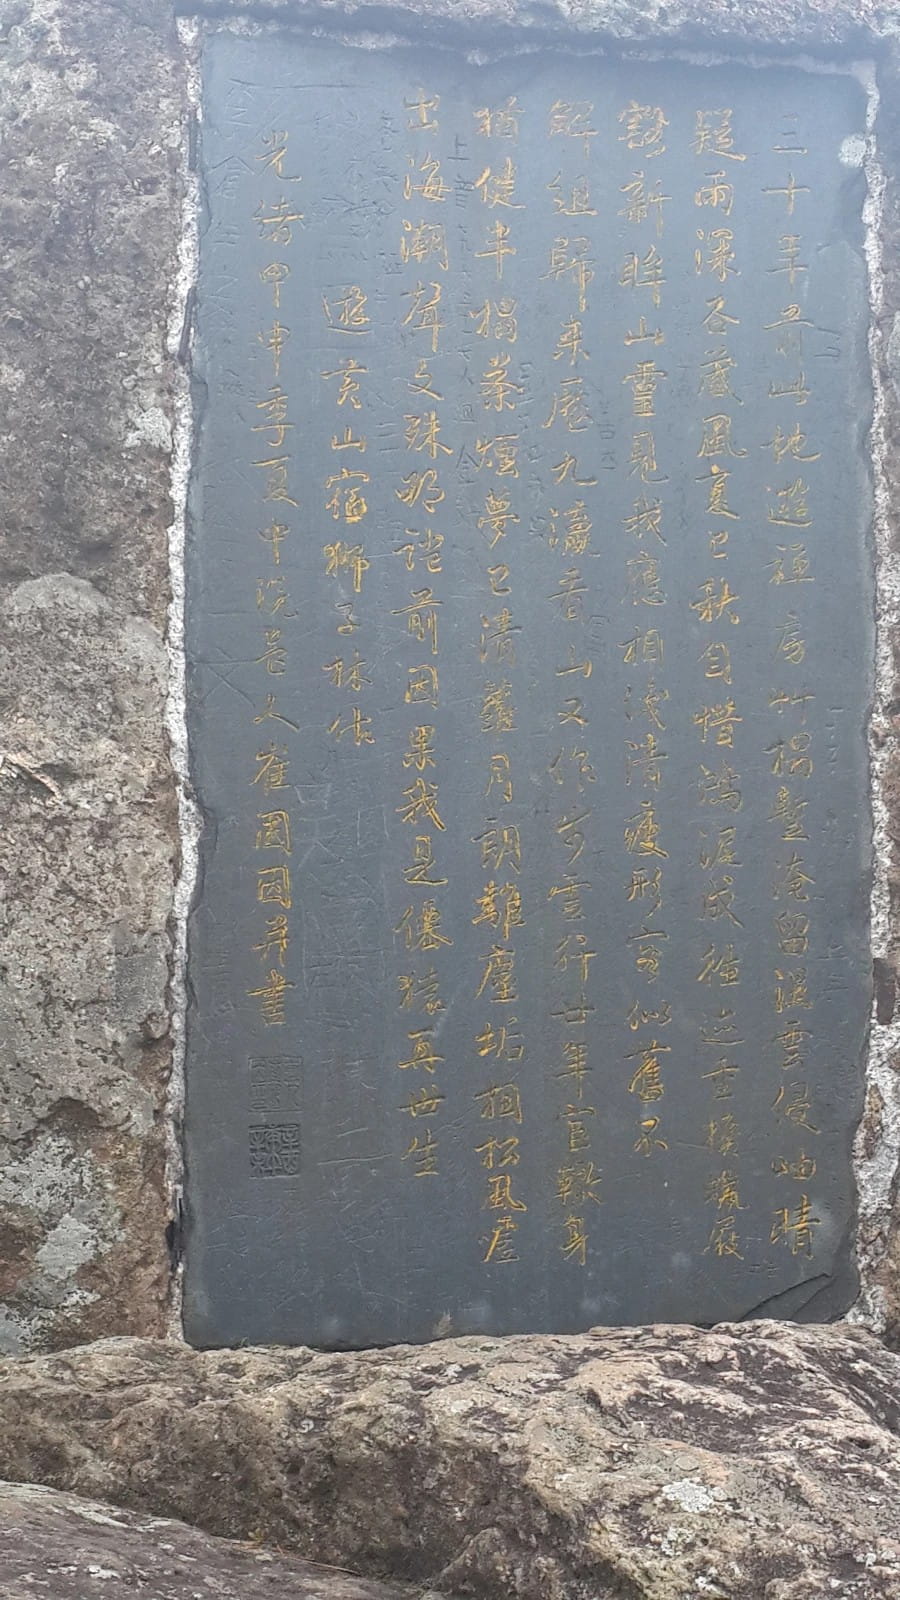 三十年前此地遊禪房竹榻暫淹留濕雲侵岫晴
疑雨深谷藏風夏已秋自惜鴻泥成往迹重攜筇屐
豁新眸山靈見我應相識清瘦形容似舊不
解組歸來歷九瀛看山又作步雲行廿年官轍身
猶健半榻茶煙夢已清月朗離塵垢相松風虛
出海潮聲文殊證前因果我是僊猿再世生
遊黃山宿獅子林作
光緒甲申季夏中浣邑人崔國因并書